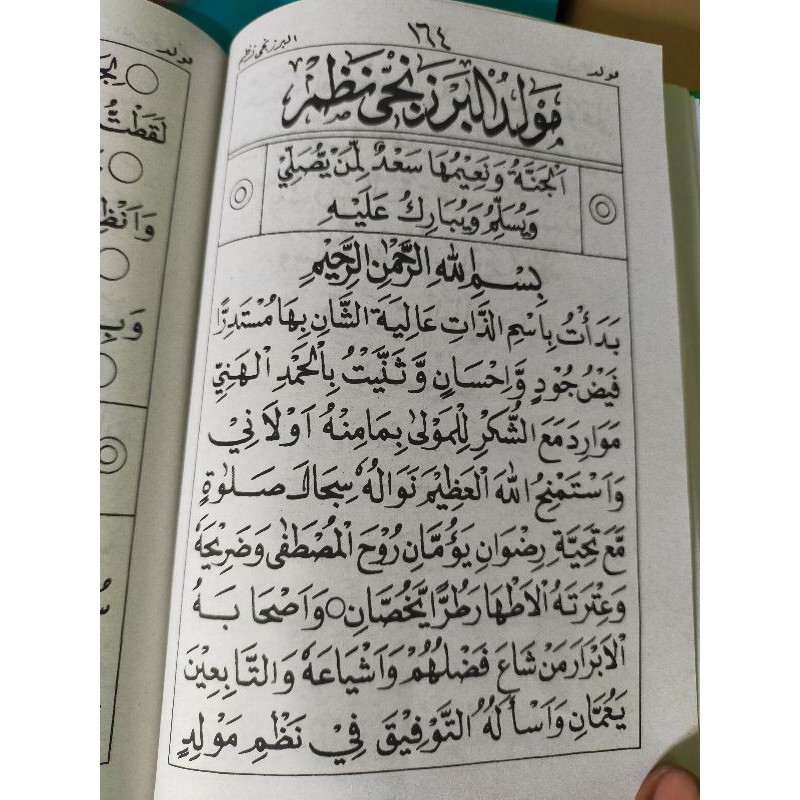 مولد
١٦٤
البرزنجى نظم
مَوْلِدُ الْبَرْزَنْجِى نَظْم
اَلْجَنَّةُ وَنَعِيْمُهَا سَعْدٌ لِّمَنْ يُّصَلِّيْ
وَيُسَلِّمُ وَيُبَارِكُ عَلَيْهِ
بِسْمِ اللهِ الرَّحْمٰنِ الرَّحِيْمِ
بَدَأْتُ بِاسْمِ الذَّاتِ عَالِيَةِ الشَّانِ بِهَا مُسْتَدِرًّا
فَيْضُ جُوْدٍ وَّاِحْسَانٍ وَّثَنَّيْتُ بِالْحَمْدِ الْهَنِيِّ
مَوَارِدَ مَعَ الشُّكْرِ لِلْمَوْلٰى بِمَا مِنْهُ اَوْلَانِيْ
وَاَسْتَمْنِحُ اللهَ الْعَظِيْمَ نَوَالَهٗ سِجَالَ صَلٰوةٍ
مَّعَ تَحِيَّةِ رِضْوَانٍ يَؤُمَّانِ رُوْحَ الْمُصْطَفٰى وَضَرِيْحَهٗ
وَعِتْرَتَهُ الْاَطْهَارَ طُرًّا يَّخُصَّانِ ○ وَاَصْحَابَهُ
الْاَبْرَارَ مَنْ شَاعَ فَضْلُهُمْ وَاَشْيَاعَهٗ وَالتَّابِعِيْنَ
يَعُمَّانِ وَاَسْأَلُهُ التَّوْفِيْقَ فِيْ نَظْمِ مَوْلِدٍ
لَقَطْتُ
وَانْظِ
وَبِ